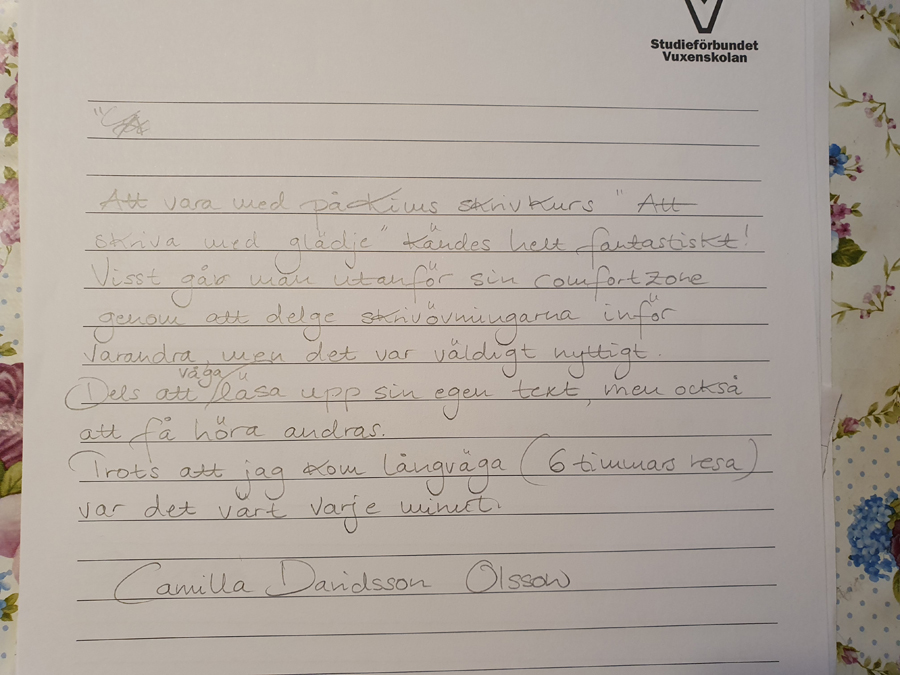 Studieförbundet
Vuxenskolan
Att vara med på Kims skrivkurs "Att
skriva med glädje" kändes helt fantastiskt!
Visst går man utanför sin comfortzone
genom att delge skrivövningarna inför
varandra, men det var väldigt nyttigt.
Dels att våga läsa upp sin egen text, men också
att få höra andras.
Trots att jag kom långväga (6 timmars resa)
var det värt varje minut.
Camilla Davidsson Olsson